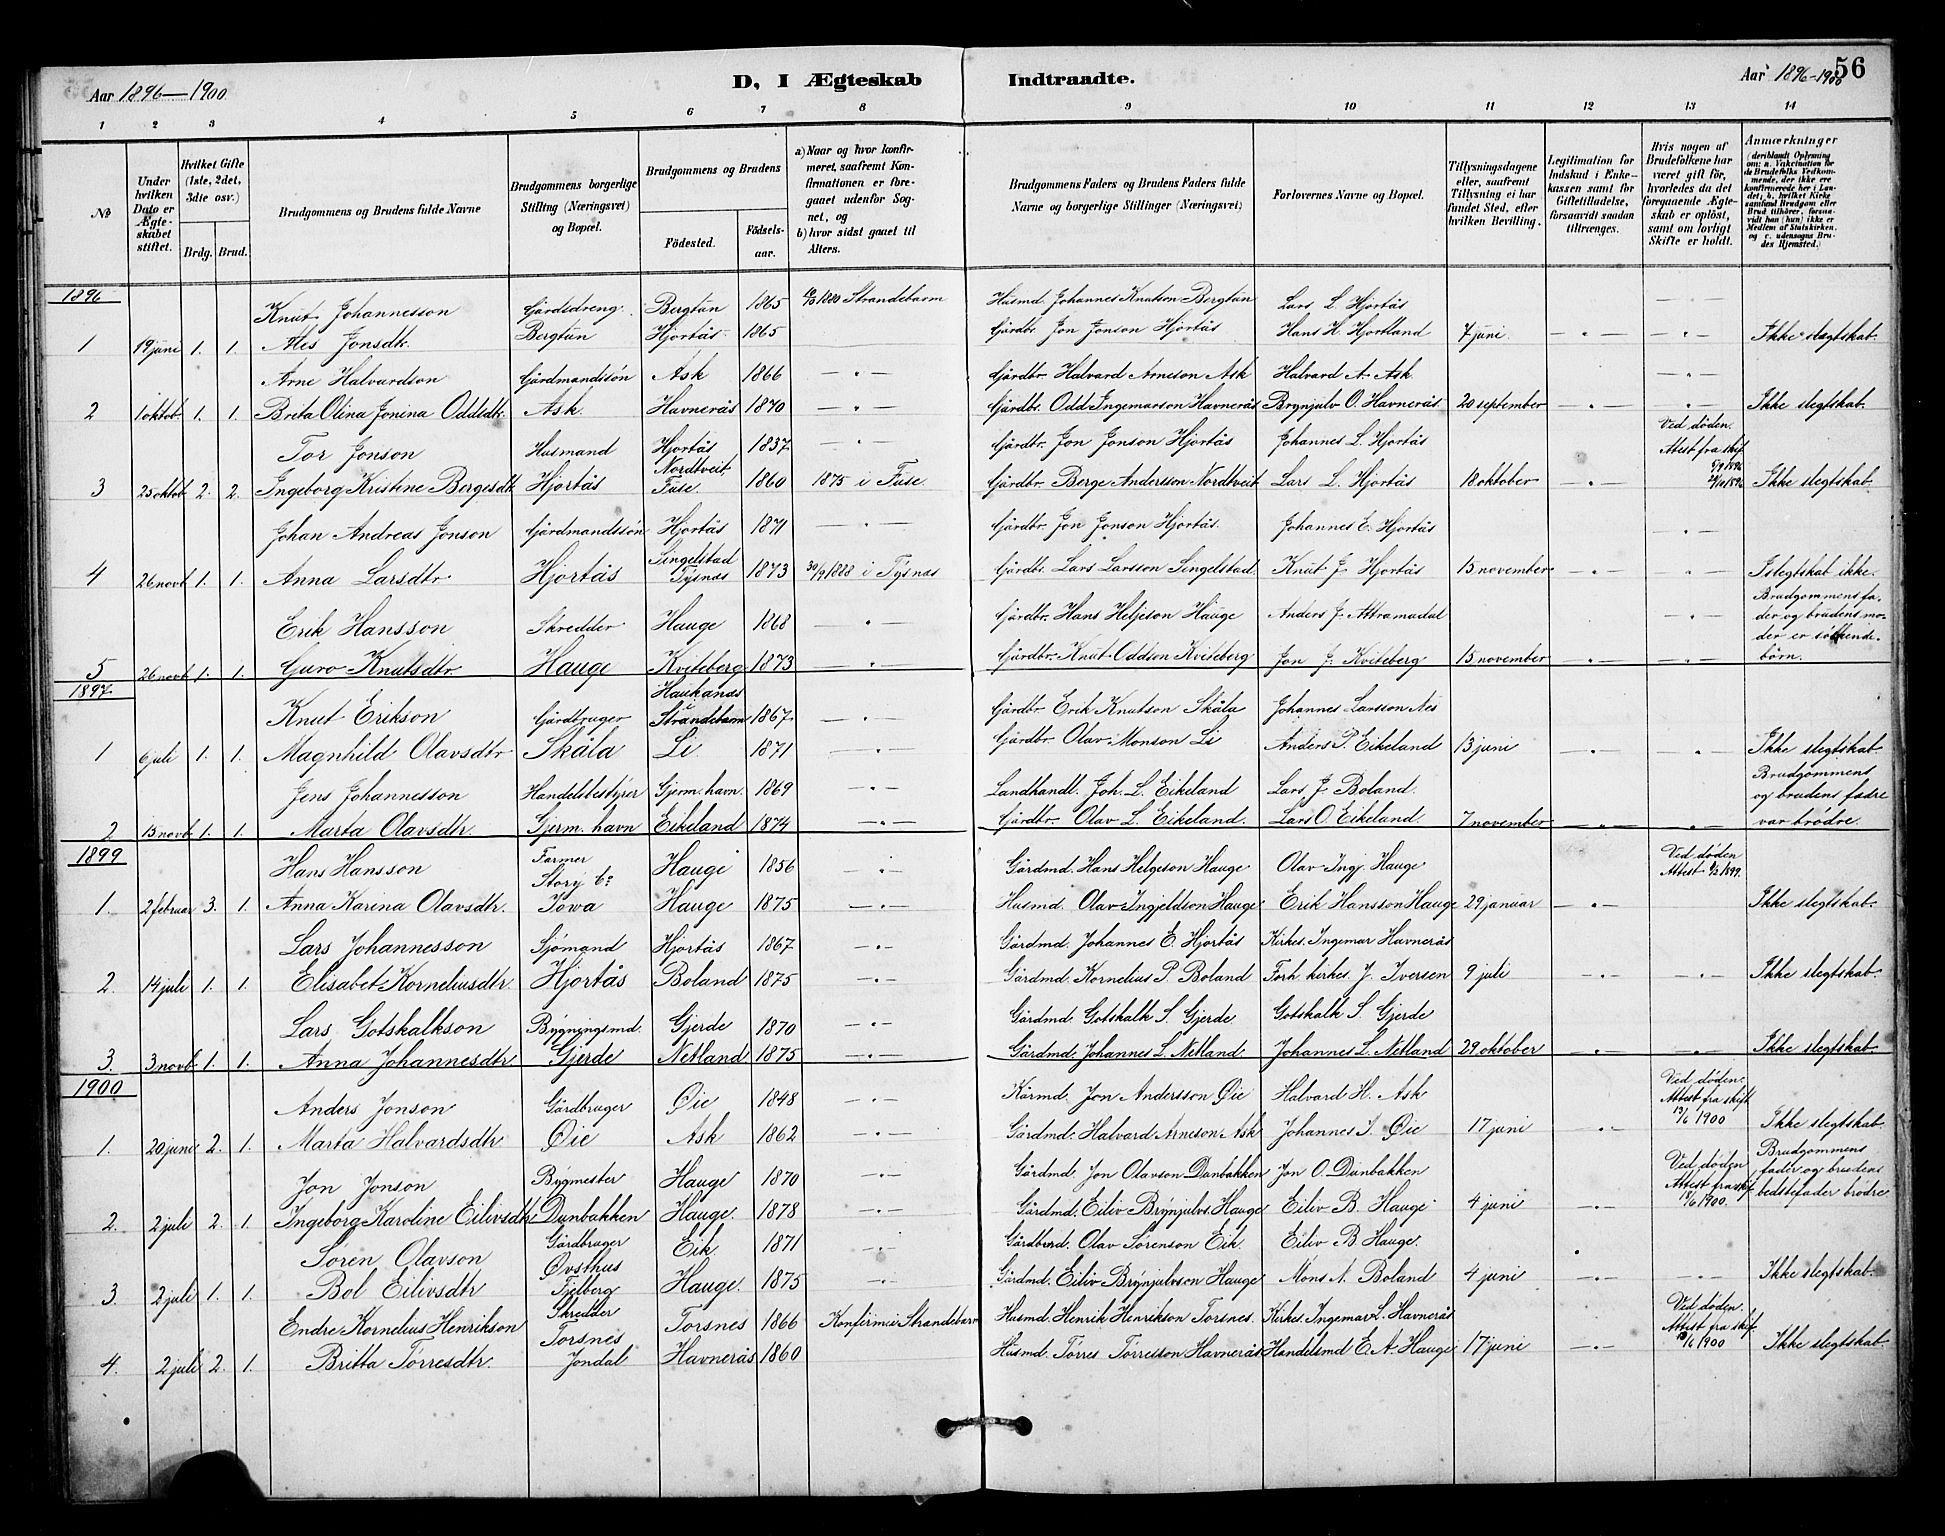 Aar 1896—1900
D, I Ægteskab Indtraadte.
Aar 1896-1900
56
1 2 3 4 5 6 7 8 9 10 11 12 13 14
№
Under hvilken Dato er Ægteskabet stiftet.
Hvilket Gifte (1ste, 2det, 3dte osv.)
Brdg. Brud.
Brudgommens og Brudens fulde Navne
Brudgommens borgerlige Stilling (Næringsvei) og Bopæl.
Brudgommens og Brudens
Födested.
Födselsaar.
a) Naar og hvor konfirmeret, saafremt Konfirmationen er foregaaet udenfor Sognet, og
b) hvor sidst gaaet til Alters.
Brudgommens Faders og Brudens Faders fulde Navne og borgerlige Stillinger (Næringsvei)
Forlovernes Navne og Bopæl.
Tillysningsdagene eller, saafremt Tillysning ei har fundet Sted, efter hvilken Bevilling.
Legitimation for Indskud i Enkekassen samt for Giftetilladelse, forsaavidt saadan tiltrænges.
Hvis nogen af Brudefolkene har været gift för, hvorledes da det foregaaende Ægteskab er oplöst, samt om lovligt Skifte er holdt.
Anmærkninger
(deriblandt Oplysning om: a. Vakcination for de Brudefolks Vedkommende, der ikke ere konfirmerede her i Landet; b. hvilket Kirkesamfund Brudgom eller Brud tilhörer, forsaavidt han (hun) ikke er Medlem af Statskirken, og c. udensogns Brudes Hjemsted.)
1896
Knut Johannesson Gårdsdreng Bergtun 1865 1880 Strandebarm Husmd. Johannes Knutson Bergtun Lars L. Hjortås
1 19 juni 1. 1. Ales Jonsdtr. Bergtun Hjortås 1865 Gårdbr. Jon Jonson Hjortås Hans H. Hjortland 7 juni Ikke slegtskab.
Arne Halvardson Gårdmandssön Ask 1866 Gårdbr. Halvard Arneson Ask Halvard A. Ask
2 1 oktob. 1. 1. Brita Olina Jonina Oddsdtr. Ask Havnerås 1870 Gårdbr. Odd Ingemarson Havnerås Brynjulv O. Havnerås 20 september Ikke slegtskab.
Tor Jonson Husmand Hjortås 1837 Gårdbr. Jon Jonson Hjortås Johannes L. Hjortås Ved døden. Attest fra skif.
3 25 oktob 2. 2. Ingeborg Kristine Bergesdtr Hjortås Nordtveit Fuse. 1860 1875 i Fuse Gårdbr. Berge Andersson Nordtveit Lars L. Hjortås 18 oktober Ikke slegtskab
Johan Andreas Jonson Gårdmandssön Hjortås 1871 Gårdbr. Jon Jonson Hjortås. Johannes E. Hjortås
4 26 novb 1. 1. Anna Larsdtr Hjortås Singelstad Tysnas 1873 30/9 1888 i Tysnas Gårdbr. Lars Larsson Singelstad Knut J. Hjortås 15 november I slegtskab ikke.
Erik Hansson Skredder Hauge 1868 Gårdbr. Hans Heljeson Hauge Anders J. Attramadal Brudgommens fader og brudens moder er søskendebörn.
5 26 novb 1. 1. Guro Knutsdtr Hauge Kviteberg 1873 Gårdbr. Knut Oddson Kviteberg Jon J. Kviteberg 15 november
1897.
Knut Erikson Gårdbruger Haukanæs i Strandebarm 1867. Gårdbr Erik Knutson Skåla Johannes Larsson Nes
1 6 juli 1. 1. Magnhild Olavsdtr Skåla Li 1871 Gårdbr. Olav Monson Li Anders P. Eikeland 13 juni Ikke slegtskab.
Jens Johannesson Handelsbestyrer Gjerm.havn. 1869 Landhandl. Joh. L. Eikeland Lars J. Boland. Brudgommens og brudens fædre var brödre.
2 15 novb 1. 1. Marta Olavsdtr. Gjerm.havn Eikeland 1874 Gårdbr. Olav L. Eikeland. Lars O. Eikeland. 7 november
1899
Hans Hansson Farmer Story Co Hauge 1856 Gårdmd. Hans Helgeson Hauge Olav Ingj. Hauge Ved døden Attest 1899.
1. 2 februar 3. 1. Anna Karina Olavsdtr. Iowa Hauge 1875 Husmd. Olav Ingjeldson Hauge Erik Hansson Hauge 29 januar Ikke slegtskab.
Lars Johannesson Sjömand Hjortås 1867. Gårdmd. Johannes E. Hjortås Kirkes. Ingemar Havnerås
2. 14 juli 1. 1. Elisabet Korneliusdtr. Hjortås Boland 1875 Gårdmd. Kornelius P. Boland Forh kirkes. J. Iversen 9 juli Ikke slegtskab.
Lars Gotskalkson Bygningsmd. Gjerde 1870 Gårdmd. Gotskalk S. Gjerde Gotskalk S. Gjerde
3. 3 novb 1. 1. Anna Johannesdtr. Gjerde Netland 1875 Gårdmd. Johannes L. Netland. Johannes L. Netland 29 oktober Ikke slegtskab.
1900
Anders Jonson Gårdbruger Øie 1848 Kårmd. Jon Andersson Øie Halvard H. Ask Ved døden. Attest fra skift 13/6 1900
1. 20 juni 2. 1. Marta Halvardsdtr Øie Ask 1862 Gårdmd. Halvard Arneson Ask Johannes I. Øie 17 juni Ikke slegtskab.
Jon Jonson Bygmester Hauge 1870 Gårdmd. Jon Olavson Dunbakken Jon O. Dunbakken Ved døden Attest fra skif. 18/6 1900. Brudgommens fader og brudens bedstefader brödre.
2. 2 juli 2. 1. Ingeborg Karoline Eilivsdtr Dunbakken Hauge. 1878 Gårdmd. Eiliv Brynjulvs. Hauge Eiliv B. Hauge 4 juni
Sören Olavson Gårdbruger Øvsthus Eik. 1871 Gårdbmd. Olav Sörenson Eik. Eiliv B. Hauge.
3. 2 juli 1. 1. Bol Eilivsdtr Fjelberg Hauge. 1875 Gårdmd. Eiliv Brynjulvson Hauge Mons A. Boland 4 juni Ikke slegtskab.
Endre Kornelius Henrikson Skredder Torsnes Torsnes 1866 Konfirm. i Strandebarm Husmd. Henrik Henrikson Torsnes. Kirkes. Ingemar L. Havnerås Ved døden. Attest fra skif. 1900
4. 2 juli 2. 1. Britta Törresdtr. Jondal Havnerås 1860 Husmd. Törres Törresson Havnerås Handelsmd E. A. Hauge 17 juni Ikke slegtskab.